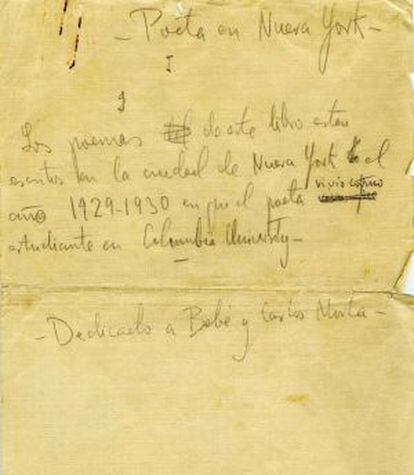 - Poeta en Nueva York -
I
Los poemas de este libro estan
escritos en la ciudad de Nueva York el
año 1929-1930 en que el poeta vivió como
estudiante en Columbia University -
- Dedicado a Bebé y Carlos Morla -